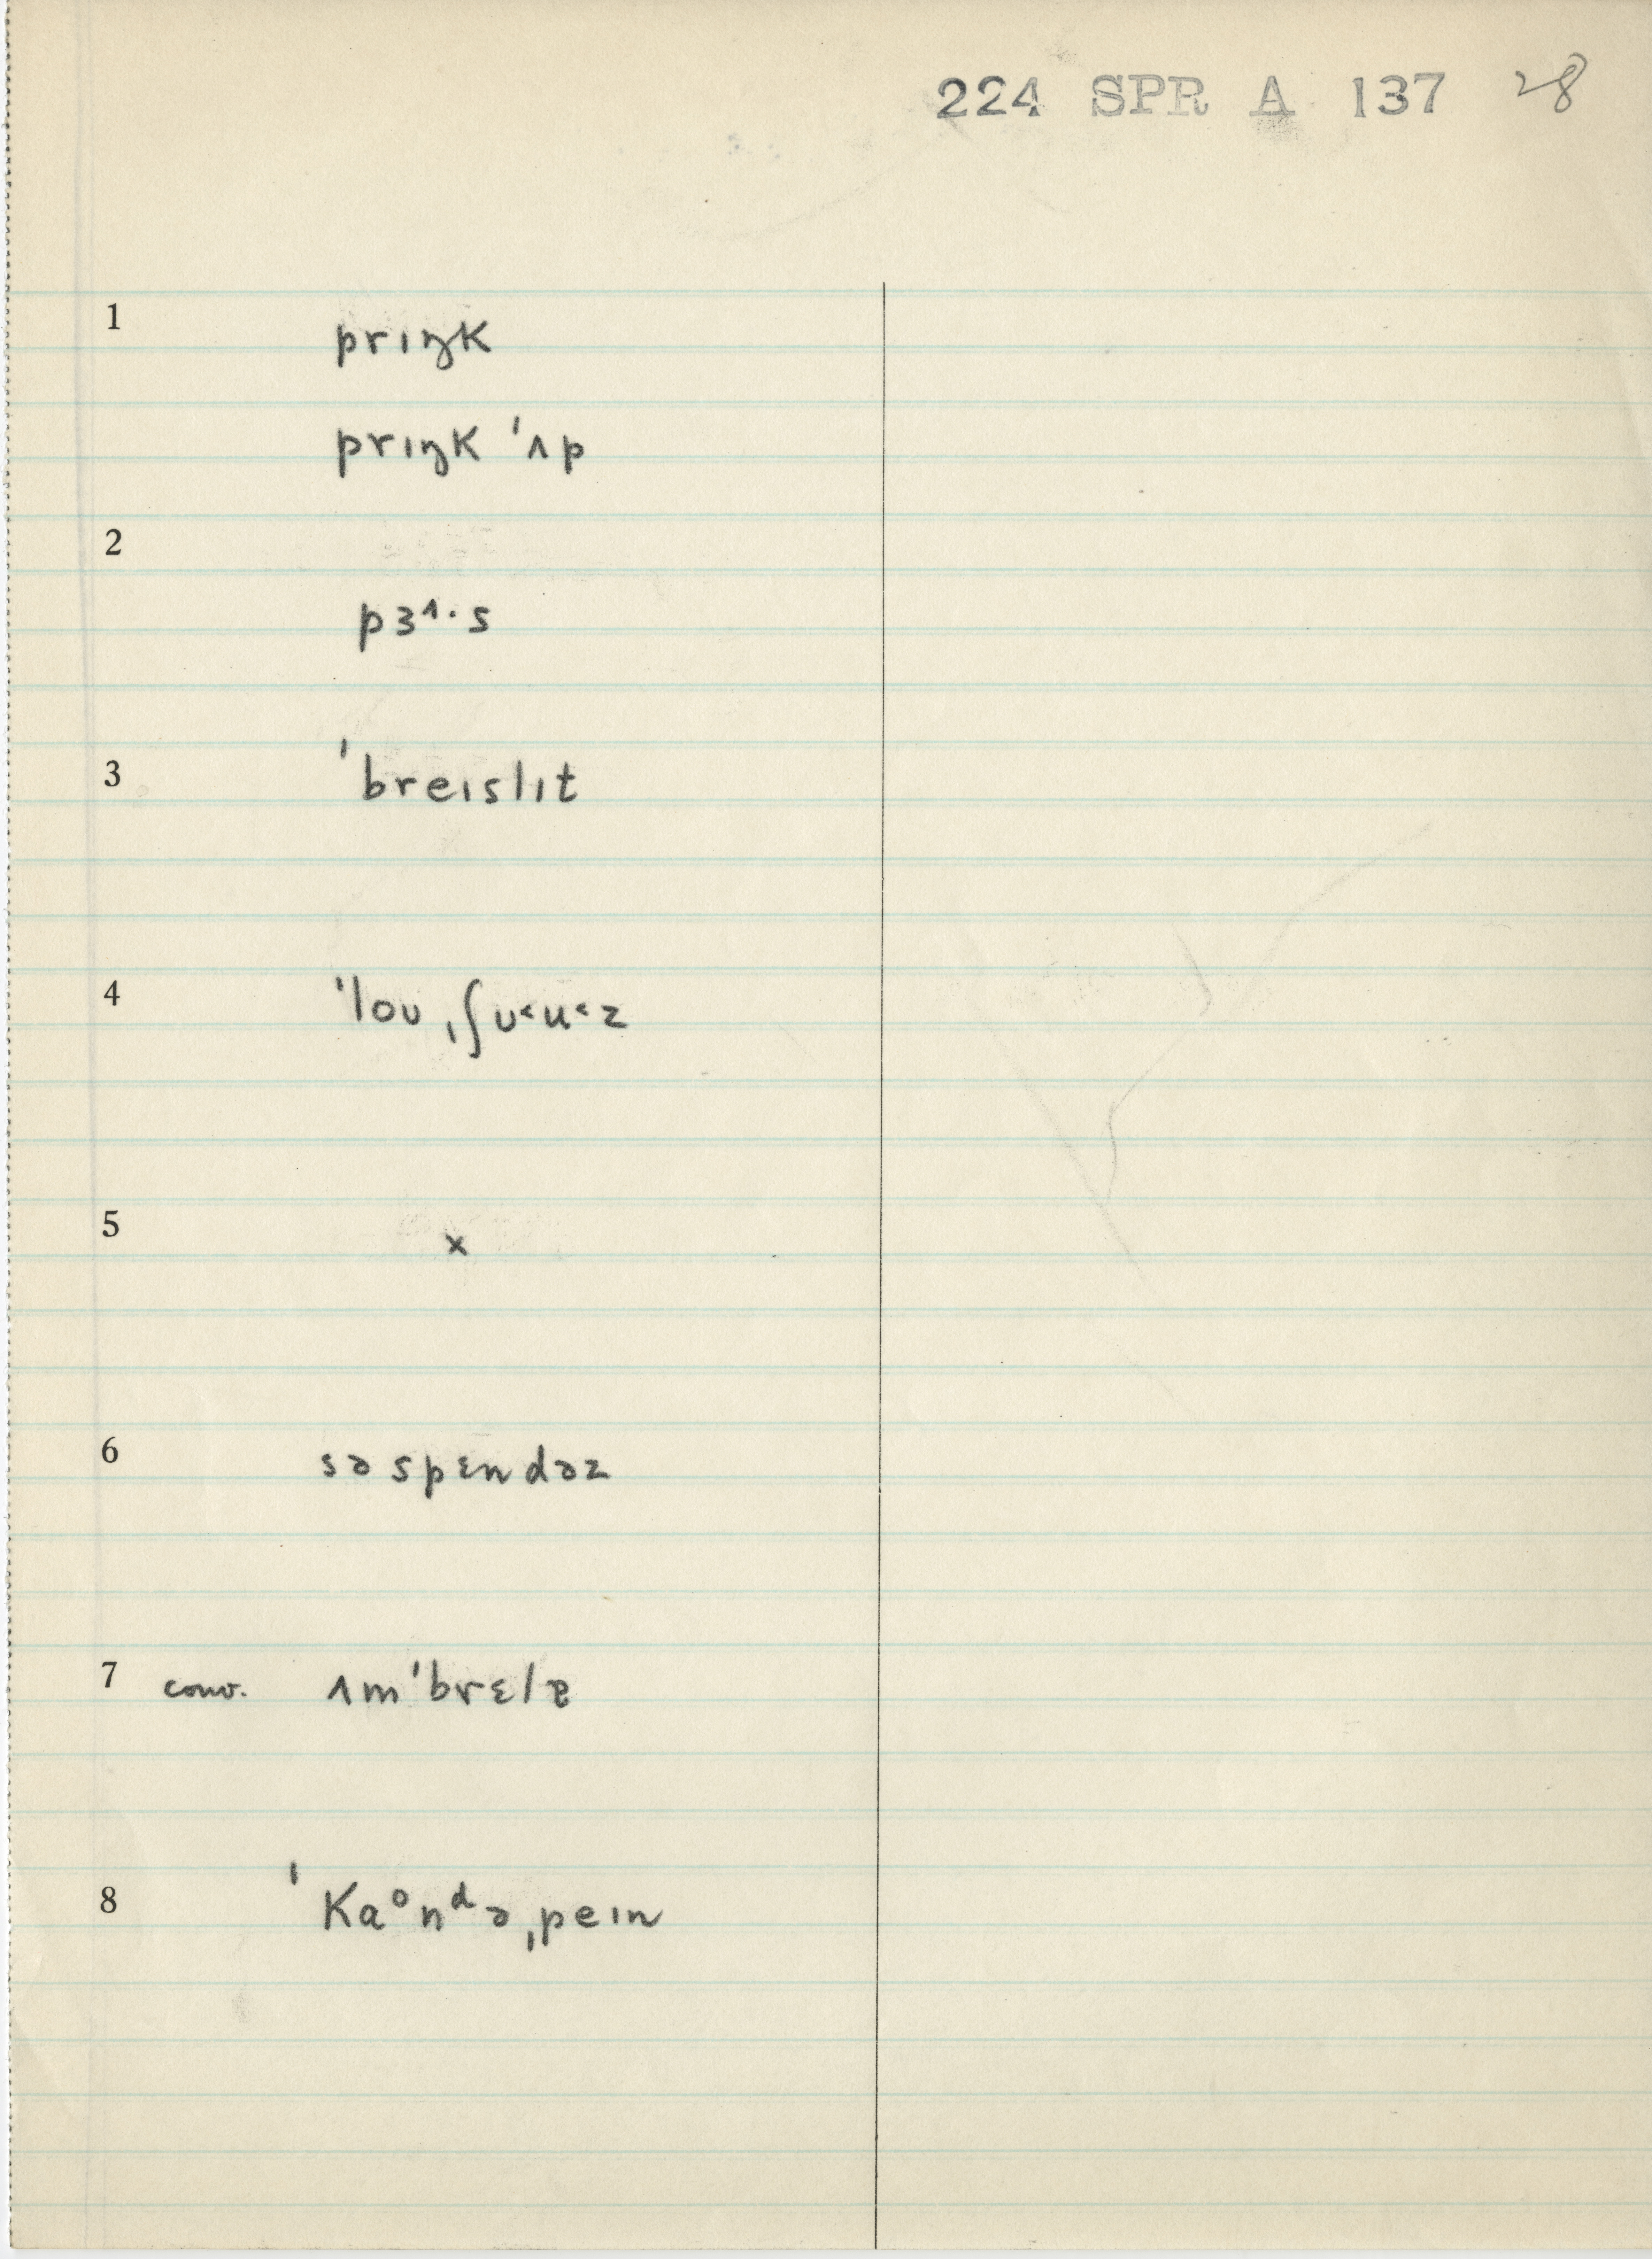 224 SPR A 137 28
1 prɪŋk
prɪŋk ˈʌp
2
pɜ^·s
3 ˈbreɪslɪt
4 ˈloʊ ˌʃʊ˂u˂z
5 x
6 səspɛndəz
7 conv. ʌmˈbrɛlɐ
8 ˈkaᵒnᵈəˌpeɪn